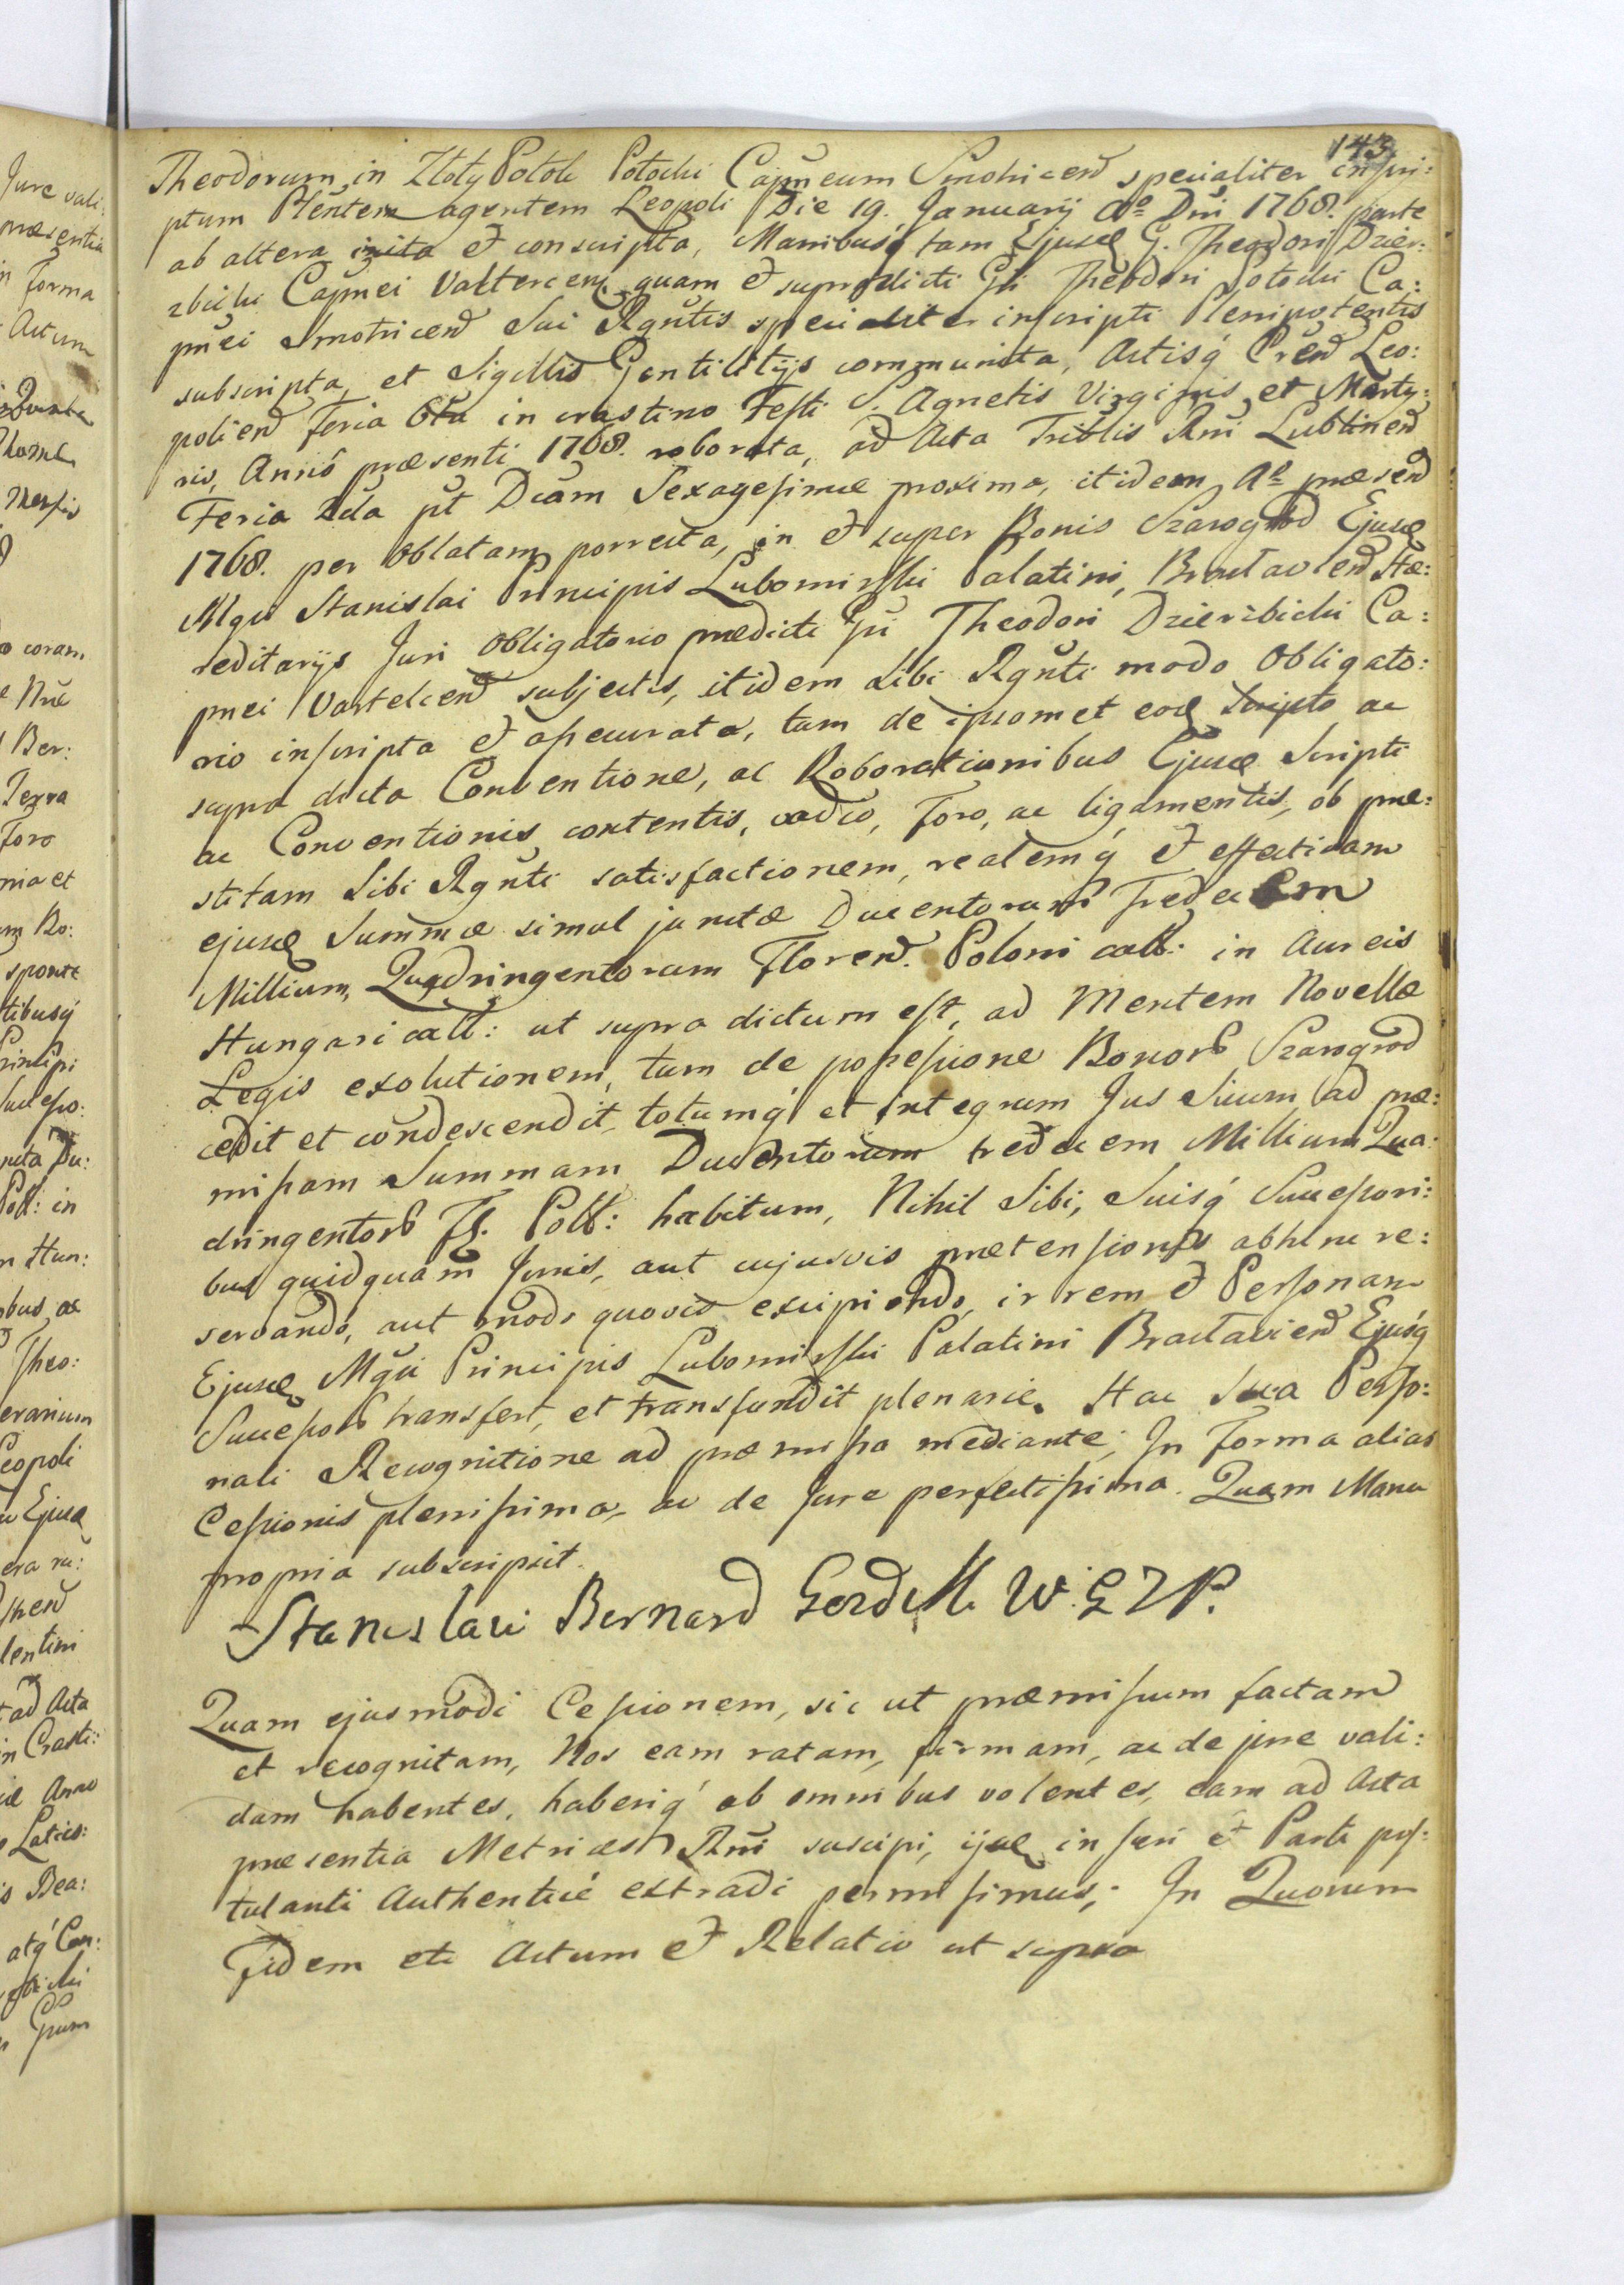 143
Theodorum in Złoty Potok Potocki Capñeum Smotricen̄ specialiter inscri:
ptum Plēntem agentem Leopoli Die 19. Januarij Aº Dñi 1768. parte
ab altera inita et conscripta, Manibusq́ tam Ejusd G. Theodori Dzier:
zbicki Capnei Valtercen̄ quam et supradicti Gñi Theodori Potocki Ca:
pñei Smotricen̄ Sui Rgñtis specialiter inscripti Plenipotentis
subscripta, et Sigillis Gentilitijs communita, Actisq́ Cren̄ Leo:
polien̄ Feria 6ta in crastino Festi S. Agnetis Virginis et Marty:
ris, Anno præsenti 1768. roborata, ad Acta Triblis Rñi Lublinen̄
Feria 2da pt Dcām Sexagesimæ proxima, itidem Aº præsen̄
1768. per Oblatam porrecta, in et super Bonis Szarogrod Ejusd
Mgci Stanislai Principis Lubomirski Palatini Braclavien̄ Hæ:
reditarijs Juri Obligatorio prædicti Gñi Theodori Dzierzbicki Ca:
pnei Vartelcen̄ subjectis, itidem Sibi Rgñti modo Obligato:
rio inscripta et assecurata, tam de ipsomet eod Scripto ac
supra dicta Conventione, ac Roborationibus Ejusd Scripti
ac Conventionis contentis, vadio, Foro, ac ligamentis, ob præ:
stitam Sibi Rgñti satisfactionem, realemq́ et effectivam
ejusd Summæ simul junctæ Ducentorum Tredecem
Millium, Quadringentorum Floren̄. Poloni call: in Aureis
Hungaricall: ut supra dictum est, ad Mentem Novellæ
Legis exolutionem, tum de possessione Bonorum Szarogrod
cedit et condescendit, totumq́ et integrum Jus Suum ad præ:
missam Summam Ducentorum tredecem Millium Qua:
dringentorum Fl. Poll: habitum, Nihil Sibi, Suisq́ Successori:
bus quidquam Juris, aut cujusvis prætensionis abhinc re:
servando, aut modo quovis excipiendo, in rem et Personam
Ejusd Mgci Principis Lubomirski Palatini Braclavien̄ Ejusq́
Successorum transfert, et transfundit plenarie. Hac Sua Perso:
nali Recognitione ad præmissa mediante; In Forma alias
Cessionis plenissima, ac de Jure perfectissima. Quam Manu
propria subscripsit.
Stanislaw Bernard W. P.
Quam ejusmodi Cessionem, sic ut præmissum factam
et recognitam, Nos eam ratam, firmam, ac de jure vali:
dam habentes, haberiq́ ab omnibus volentes, eam ad Acta
præsentia Metrices Rñi suscipi, ijsd inseri et Parti pos:
tulanti Authenticè extradi permisimus; In Quorum
Fidem etc Actum et Relatio ut supra